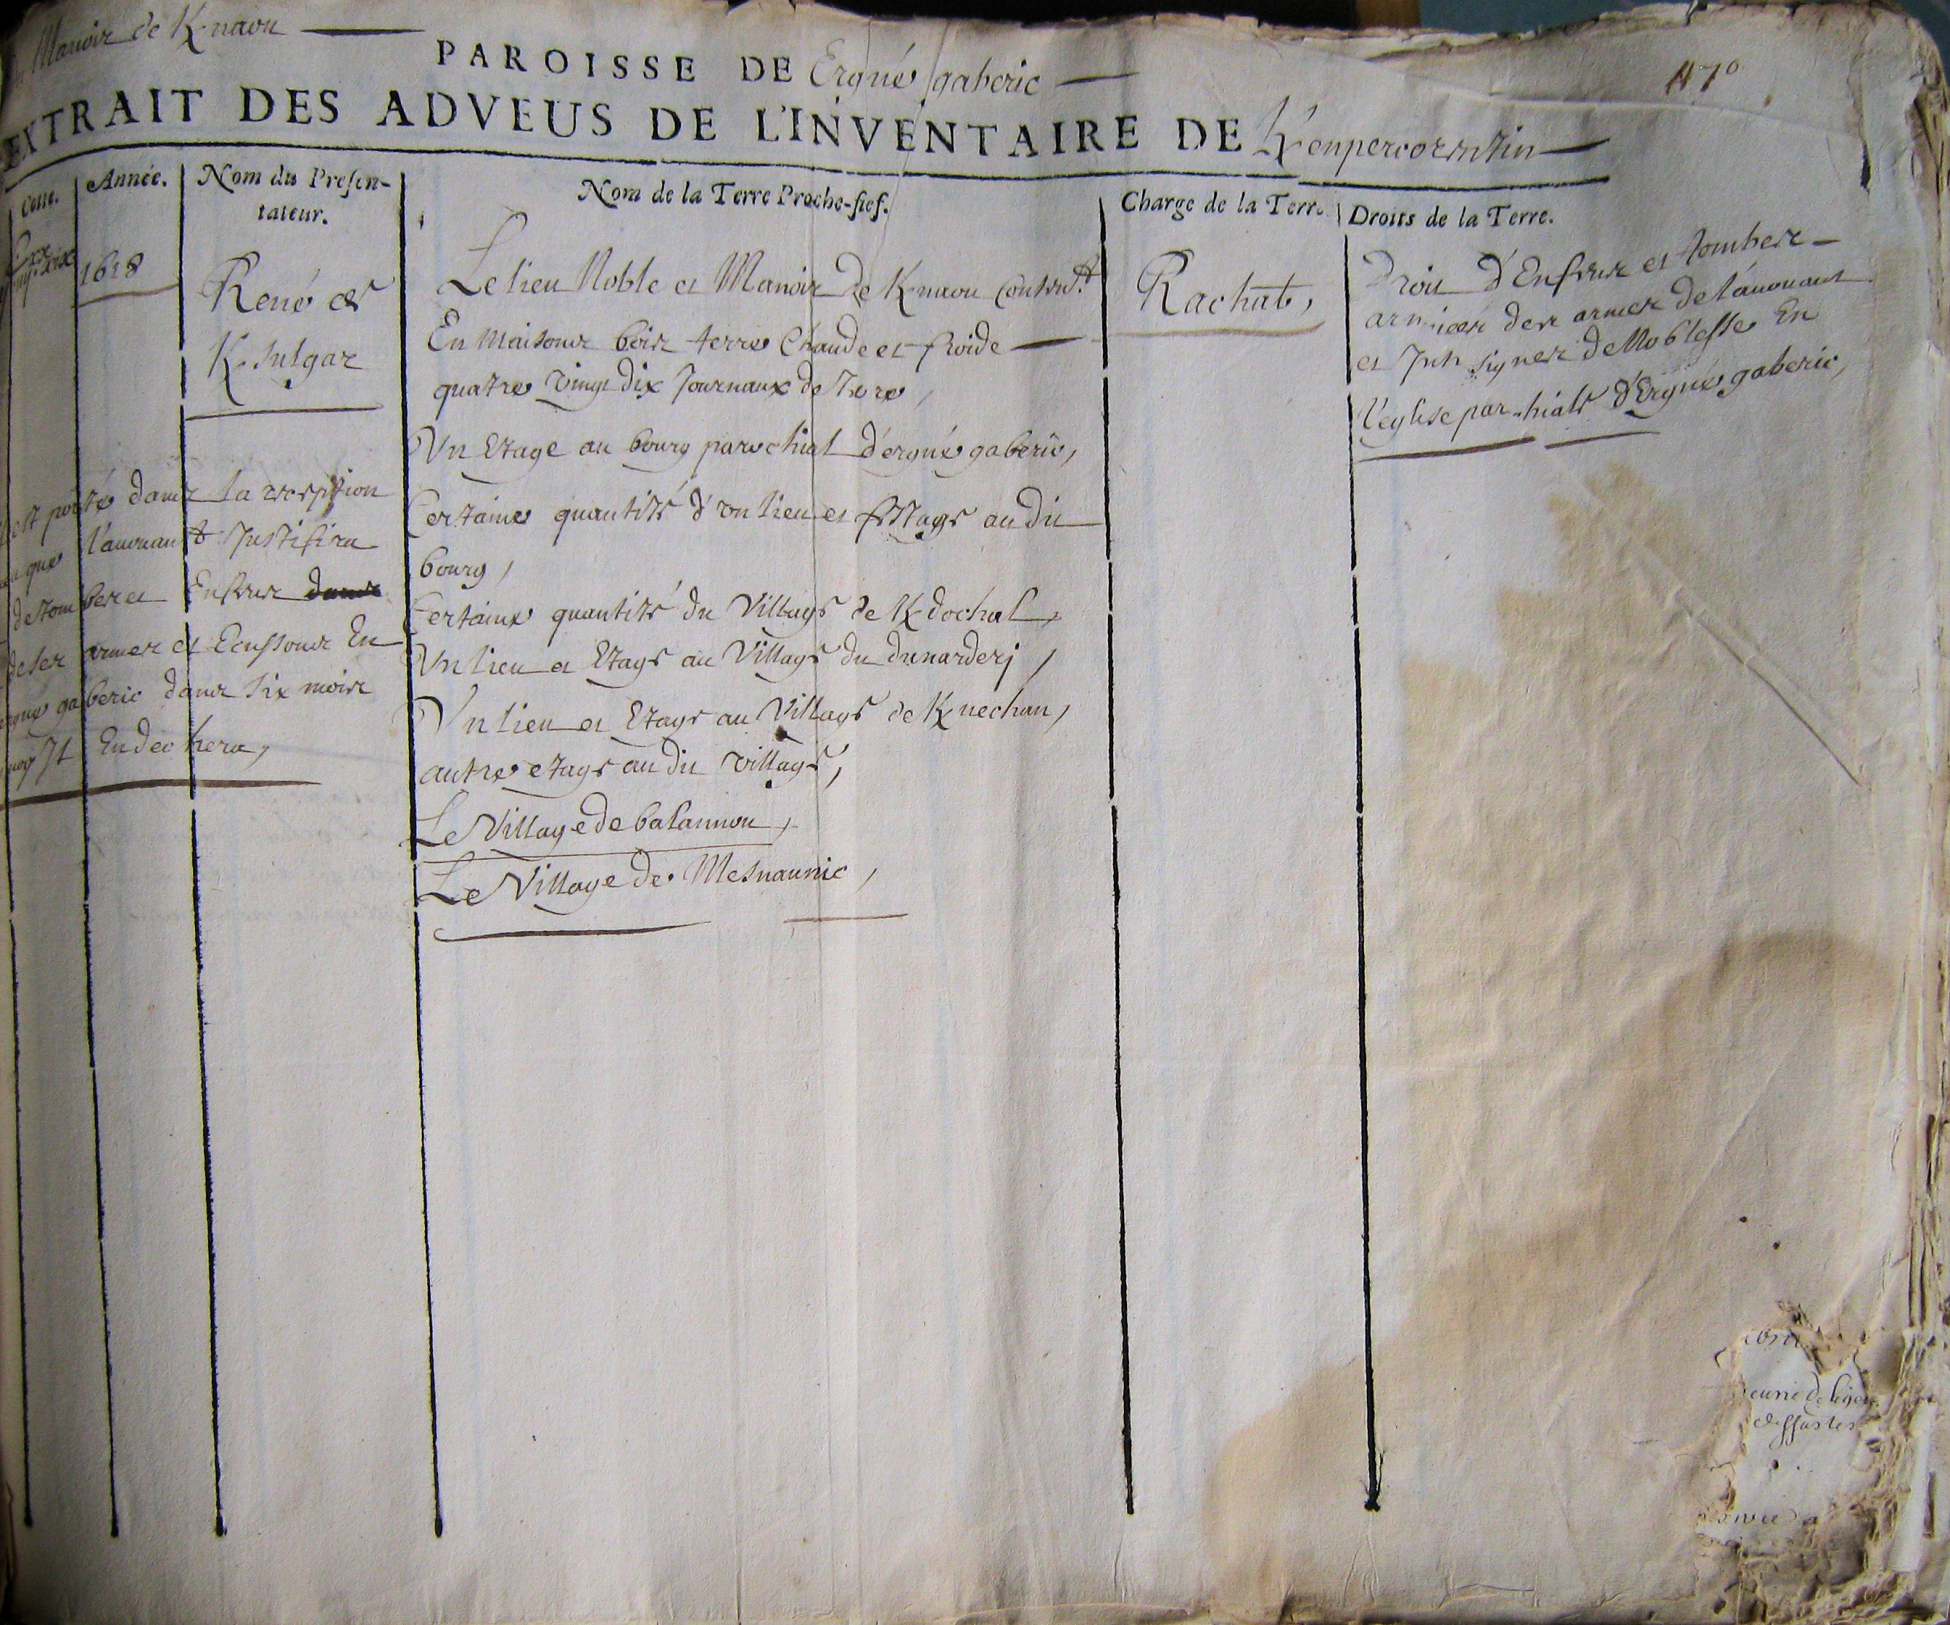 Manoir de K-naou
PAROISSE DE Ergué gaberic
470
EXTRAIT DES ADVEUS DE L'INVENTAIRE DE K'enpercorentin
Cotte.
Année.
Nom du Presen-
tateur.
Nom de la Terre Proche-fief.
Charge de la Terre.
Droits de la Terre.
1618
René de
K-sulgar
Le lieu Noble et Manoir de K-naou Conten.t
En Maisons bois terre Chaude et froide
quatre vingt dix Journaux de Tere,
Un Etage au bourg parochial d'ergué gaberic,
Certaine quantité d'un lieu et Estage au dit
bourg,
Certaine quantité du Village de K-dochal,
Un lieu et Etage au Village du dunarderj,
Un lieu et Etage au Village de K-nechan,
autre etage au dit village,
Le Village de balannou,
Le Village de Mesnaunic,
Rachat,
Droit d'Enfeux et tombes
armoiés des armes de l'avouant
et signes de Noblesse En
l'eglise parochialle d'Ergué gaberic,
est porté dans la reception
que l'avouant Justifira
de tombes et Enfeux dans
de ses armes et Ecussons En
ergué gaberic dans six mois
Il Endechera,